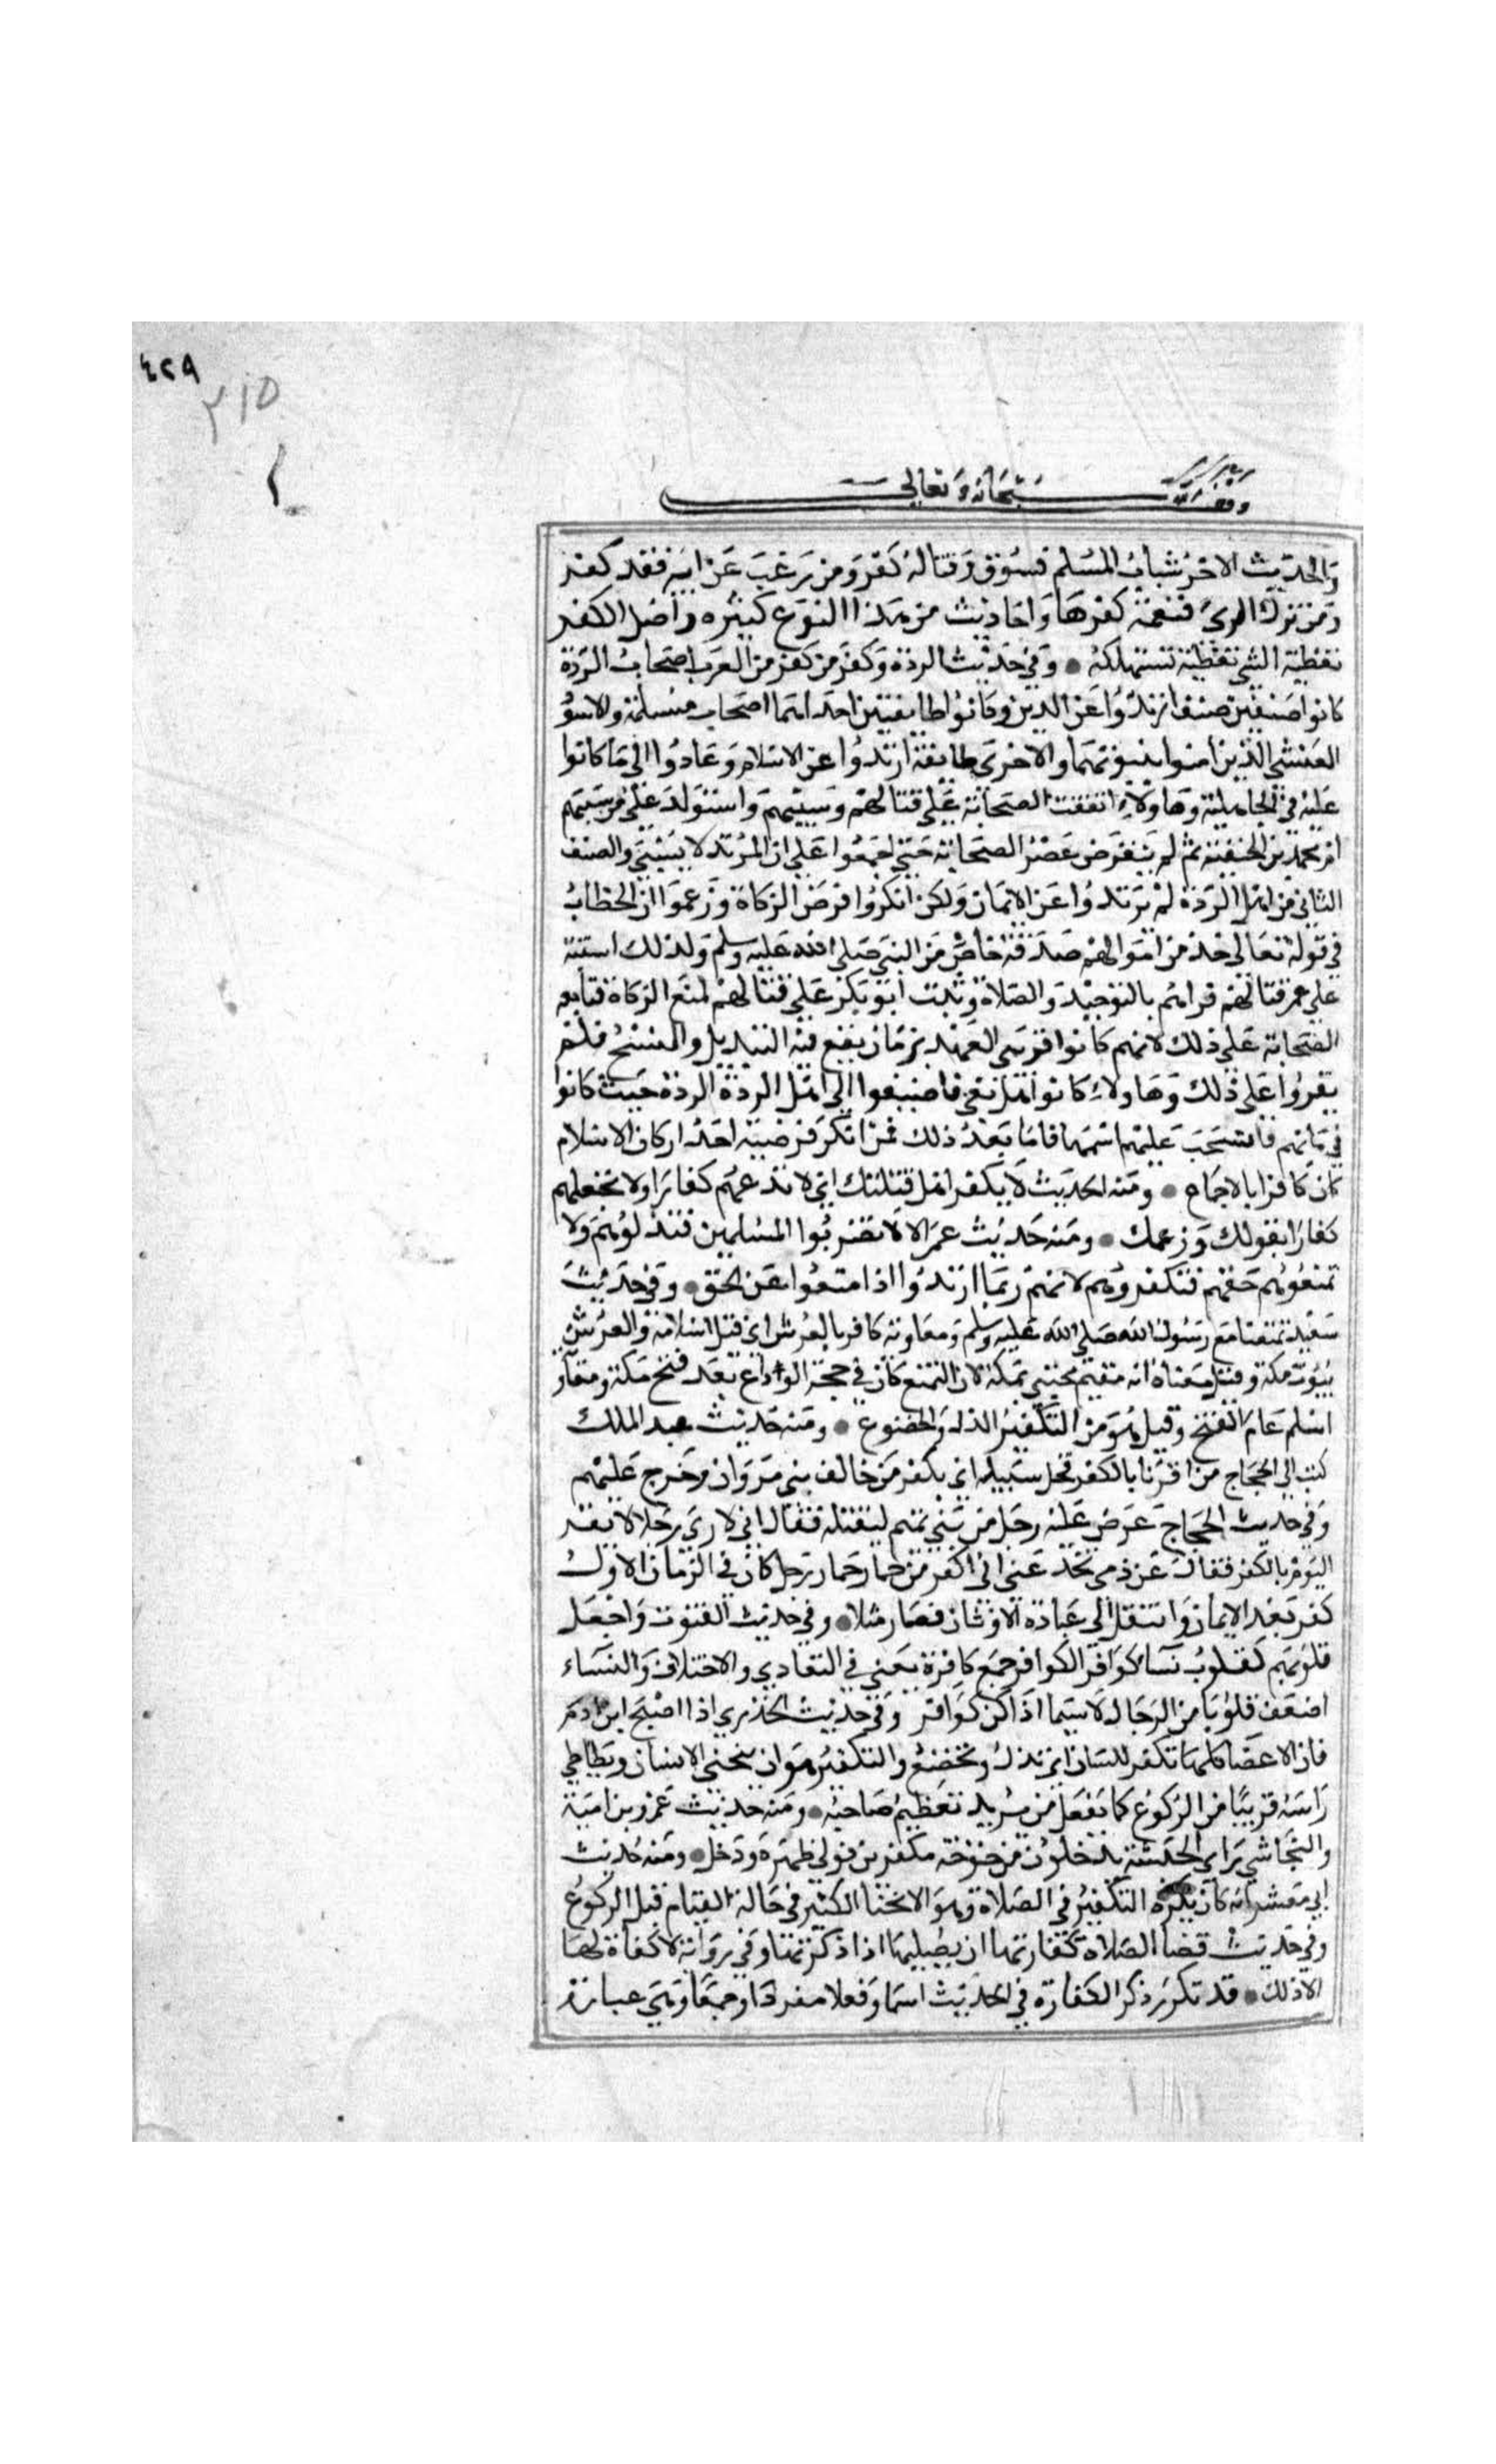 ٤٢٩
٣١٥
وقف لله سبحانه وتعالى
والحديث الاخر سباب المسلم فسوق وقتاله كفر ومن رغب عن ابيه فقد كفر
ومن ترك الرمى فنعمة كفرها واحاديث من هذا النوع كثيره واصل الكفر
تغطية الشي تغطية تستهلكه • وفي حديث الردة وكفر من كفر من العرب اصحاب الردة
كانوا صنفين صنف ارتدوا عن الدين وكانوا طايفتين احداهما اصحاب مسيلمة والاسود
العنسي الذين امنوا بنبوتهما والاخرى طايفة ارتدوا عن الاسلام وعادوا الى ما كانوا
عليه في الجاهلية وهاولاء اتفقت الصحابة على قتالهم وسبيهم واستولد علي من سبيهم
ام محمد بن الحنفية ثم لم ينقرض عصر الصحابة حتى اجمعوا على ان المرتد لا يسبى والصنف
الثاني من اهل الردة لم يرتدوا عن الايمان ولكن انكروا فرض الزكاة وزعموا ان الخطاب
في قوله تعالى خذ من اموالهم صدقة خاص من النبي صلى الله عليه وسلم ولذلك اشتبه
على عمر قتالهم قرامهم بالتوحيد والصلاة وثبت ابو بكر على قتالهم لمنع الزكاة فتابعه
الصحابة على ذلك لانهم كانوا قريبي العهد بزمان يقع فيه التبديل والنسخ فلم
يقروا على ذلك وهاولاء كانوا اهل بغي فاضيفوا الى اهل الردة الردة حيث كانوا
في زمانهم فانسحب عليهم اسمها فاما بعد ذلك فمن انكر فرضية احد اركان الاسلام
كان كافرا بالاجماع • ومنه الحديث لا يكفر اهل قبلتك اي لا تدعهم كفارا ولا تجعلهم
كفارا بقولك وزعمك • ومنه حديث عمر الا لا تضربوا المسلمين فتذلوهم ولا
تمنعوهم حقهم فتكفروهم لانهم ربما ارتدوا اذا منعوا عن الحق • وفي حديث
سعيد تمتعنا مع رسول الله صلى الله عليه وسلم ومعاوية كافر بالعرش اي قبل اسلامه والعرش
بيوت مكة وقيل معناه انه مقيم مختبي بمكة لان التمتع كان في حجة الوداع بعد فتح مكة ومعاو
اسلم عام الفتح وقيل هو من التكفير الذل والخضوع • ومنه حديث عبد الملك
كتب الى الحجاج من اقرنا بالكفر فخل سبيله اي بكفر من خالف بني مروان وخرج عليهم
وفي حديث الحجاج عرض عليه رجل من بني تميم ليقتله فقال اني لارى رجلا لا يقر
اليوم بالكفر فقال عن دمي تخدعني اني اكفر من حمار حمار رجل كان في الزمان الاول
كفر بعد الايمان وانتقل الى عبادة الاوثان فصار مثلا • وفي حديث القنوت واجعل
قلوبهم كقلوب نسا كوافر الكوافر جمع كافرة يعني في التعادي والاختلاف والنساء
اضعف قلوبا من الرجال لا سيما اذا كن كوافر وفي حديث الخدري اذا اصبح ابن ادم
فان الاعضا كلها تكفر للسان اي تذل وتخضع والتكفير هو ان ينحني الانسان ويطاطي
راسه قريبا من الركوع كما يفعل من يريد تعظيم صاحبه • ومنه حديث عمرو بن امية
والنجاشي راي الحبشة يدخلون من خوخة مكفرين فولى ظهره ودخل • ومنه حديث
ابي معشر انه كان يكره التكفير في الصلاة وهو الانحنا الكثير في حالة القيام قبل الركوع
وفي حديث قضا الصلاة كفارتها ان يصليها اذا ذكرتها وفي رواية لا كفارة لها
الا ذلك • قد تكرر ذكر الكفارة في الحديث اسما وفعلا مفردا وجمعا وهي عبارة